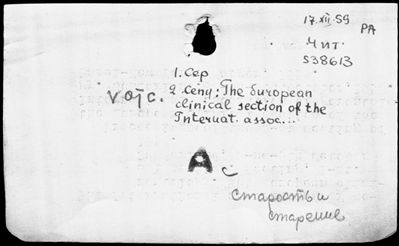 17.XII.59
РА
Чит.
538613
1. Сер
2. ceny: The European
v ojc. clinical section of the
Internat. assoc...
A
с
старость и
старение